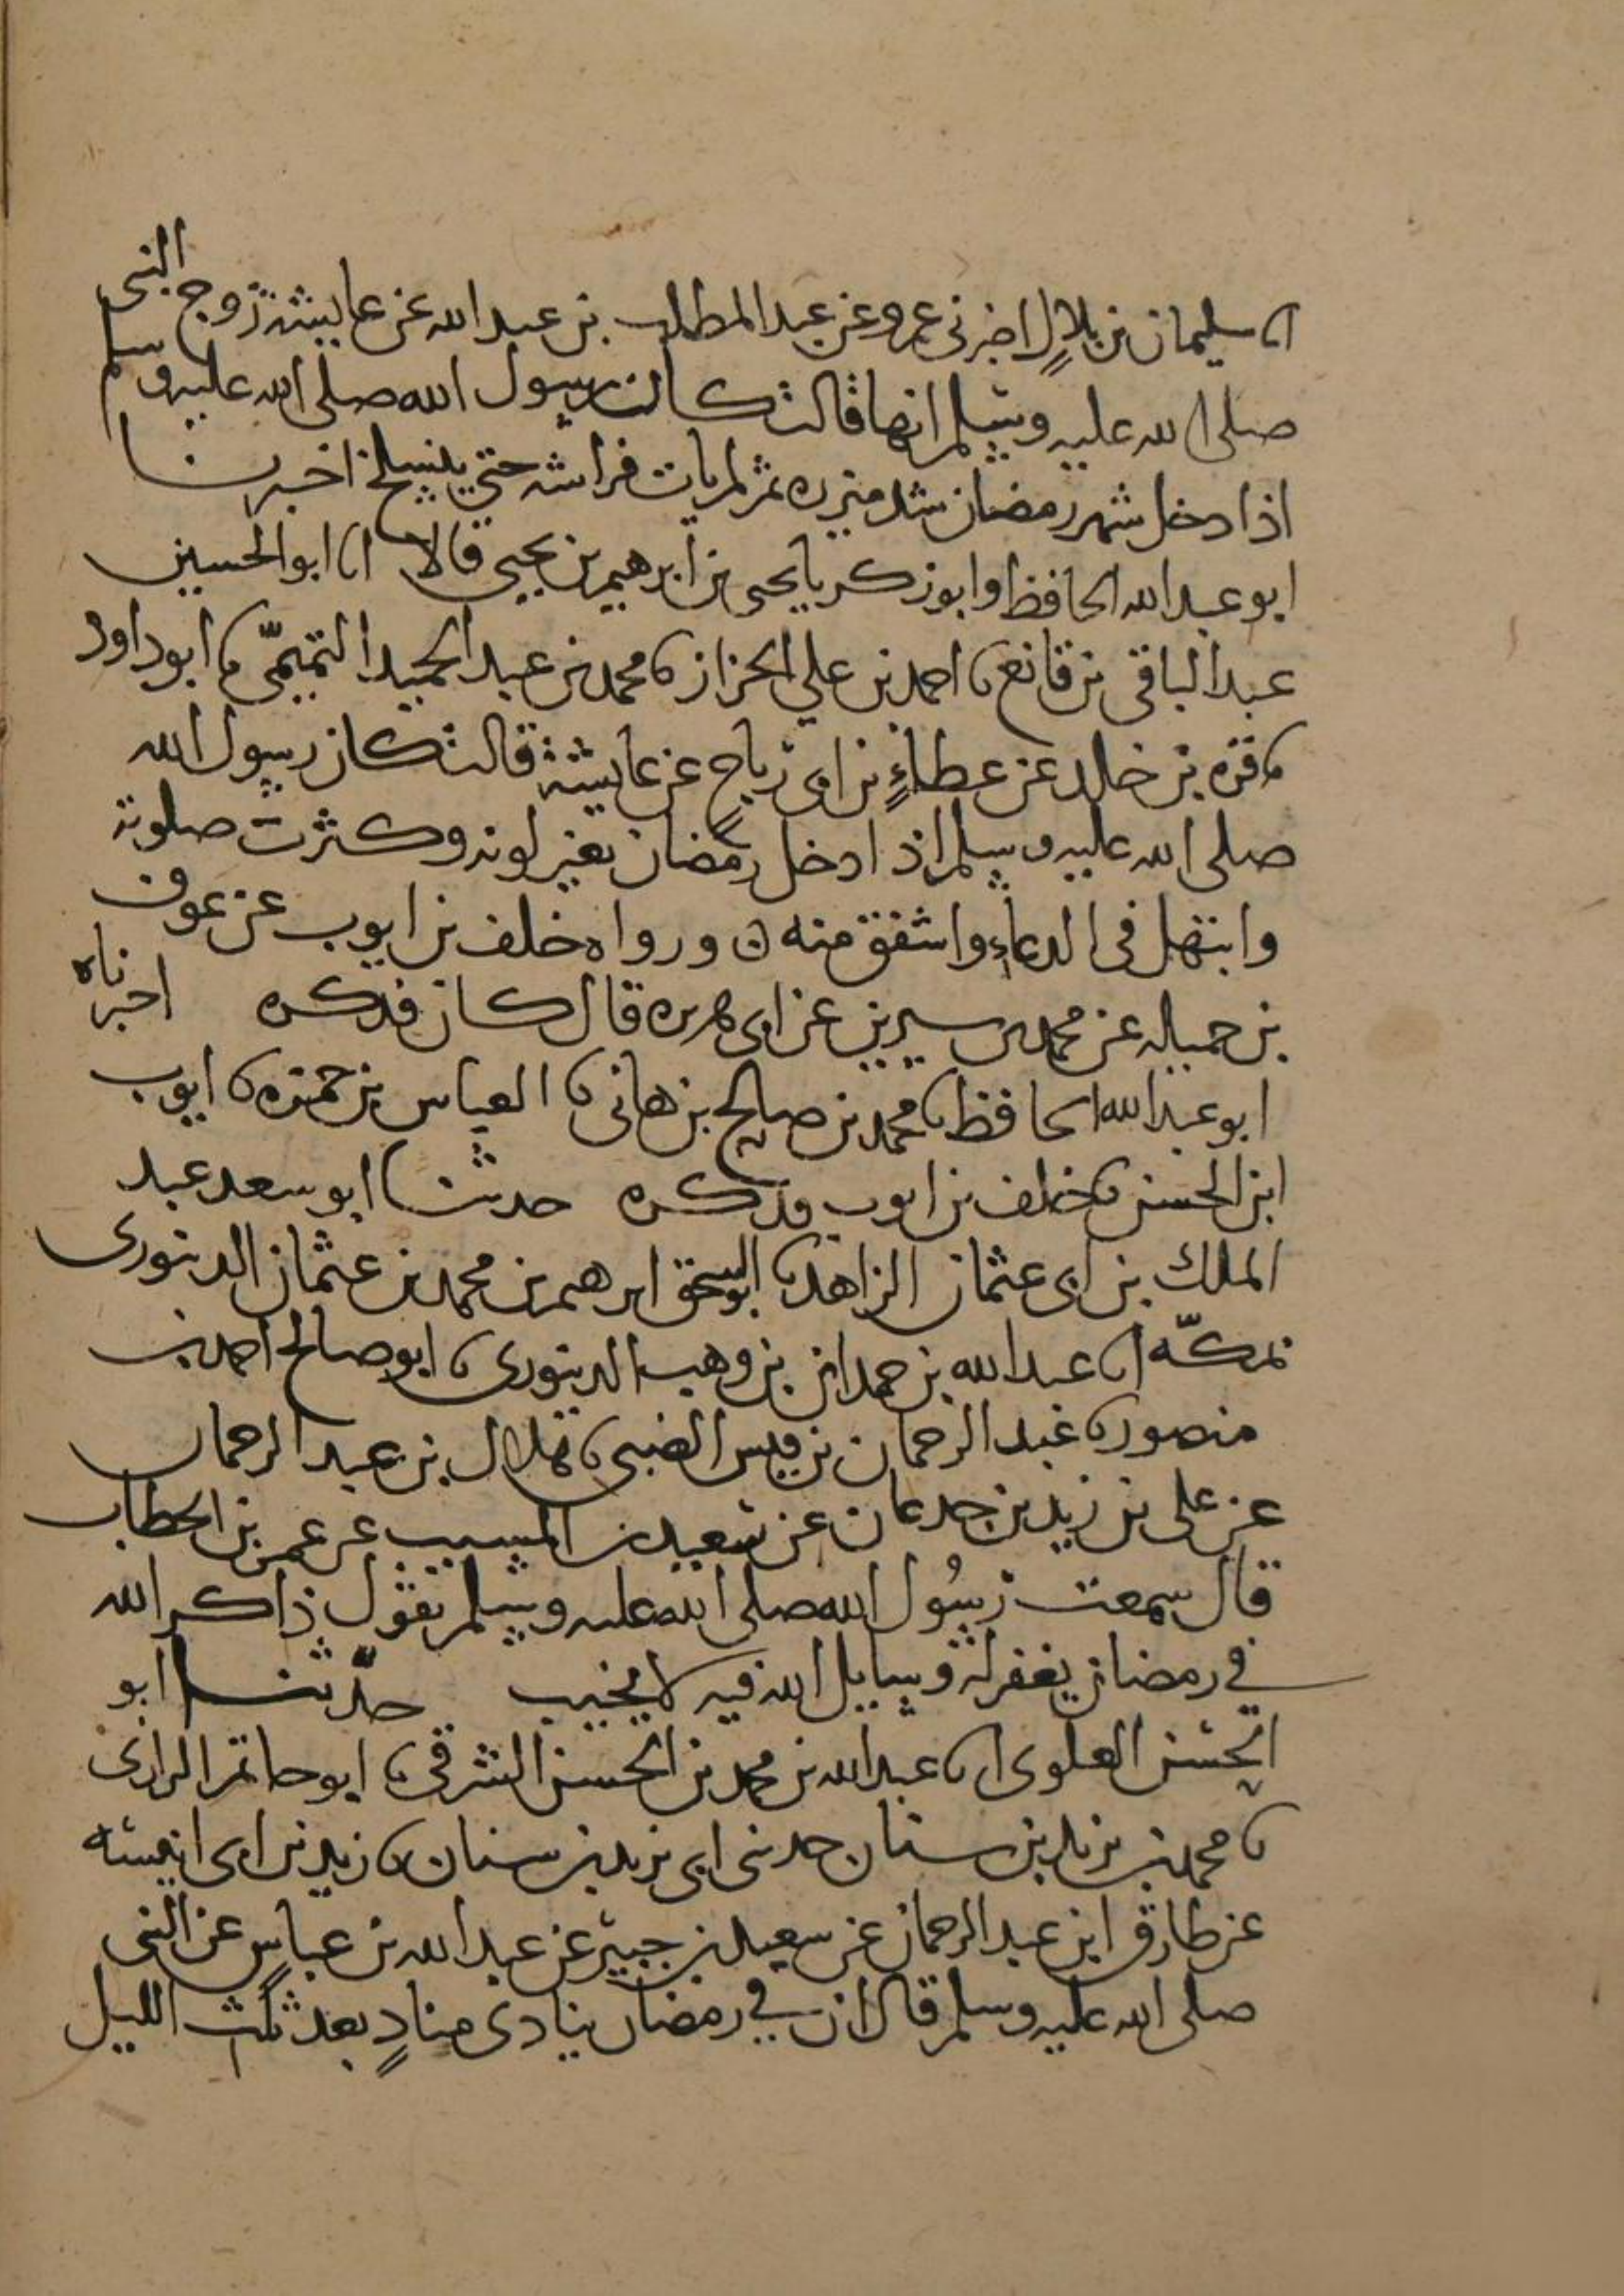 انا سليمان بن بلال اخبرني عمرو عن عبد المطلب بن عبد الله عن عايشة زوج النبي
صلى الله عليه وسلم انها قالت كان رسول الله صلى الله عليه وسلم
اذا دخل شهر رمضان شد ميزره ثم لم يات فراشه حتى ينسلخ اخبرنا
ابو عبد الله الحافظ وابو زكريا يحيى بن ابرهيم بن يحيى قالا انا ابو الحسين
عبد الباقي بن قانع نا احمد بن علي الخزاز نا محمد بن عبد الحميد التميمّي نا ابو داود
نا قرة بن خالد عن عطاءٍ بن ابي رباح عن عايشة قالت كان رسول الله
صلى الله عليه وسلم اذا دخل رمضان تغير لونه وكثرت صلوته
وابتهل في الدعاء واشفق منه ن ورواه خلف بن ايوب عن عوف
بن حميله عن محمد بن سيرين عن ابي هريره قال كان فذكره اخبرناه
ابو عبد الله الحافظ نا محمد بن صالح بن هاني نا العباس بن حمزه نا ايوب
ابن الحسن نا خلف بن ايوب فذكره حدثنا ابو سعد عبد
الملك بن ابي عثمان الزاهد نا ابو اسحق ابرهيم بن محمد بن عثمان الدينوري
بمكّه انا عبد الله بن حمدان بن وهب الدينوري نا ابو صالح احمد بن
منصور نا عبد الرحمان بن قيس الضبي نا هلال بن عبد الرحمان
عن علي بن زيد بن جدعان عن سعيد بن المسيب عن عمر بن الخطاب
قال سمعت رسُول الله صلى الله عليه وسلم يقول ذاكر الله
في رمضان يغفر له وسايل الله فيه لا يخيب حدّثنا ابو
الحسن العلوي انا عبد الله بن محمد بن الحسن الشرقي نا ابو حاتم الرازي
نا محمد بن يزيد بن سنان حدثني ابي يزيد بن سنان نا زيد بن ابي انيسه
عن طارق ابن عبد الرحمان عن سعيد بن جبير عن عبد الله بن عباس عن النبي
صلى الله عليه وسلم قال ان في رمضان ينادي منادٍ بعد ثلث الليل